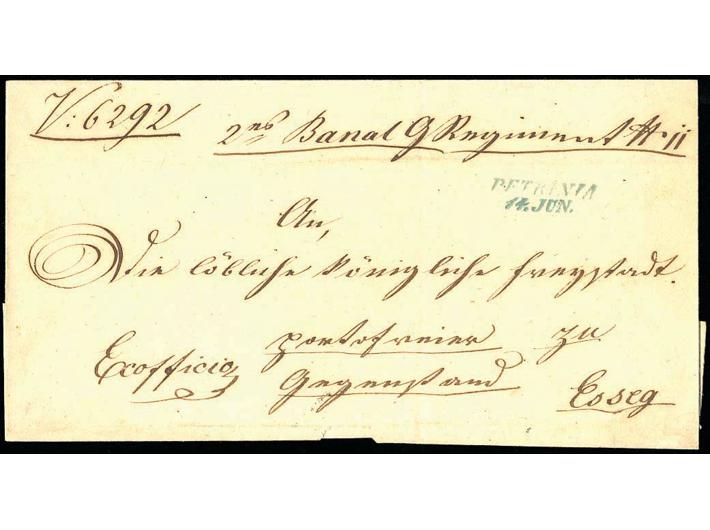 V: 6292
2es Banal G Regiment № 11
PETRINIA
14. JUN.
An,
die löbliche königliche Freystadt.
portofreier zu
Exofficio Gegenstand Esseg